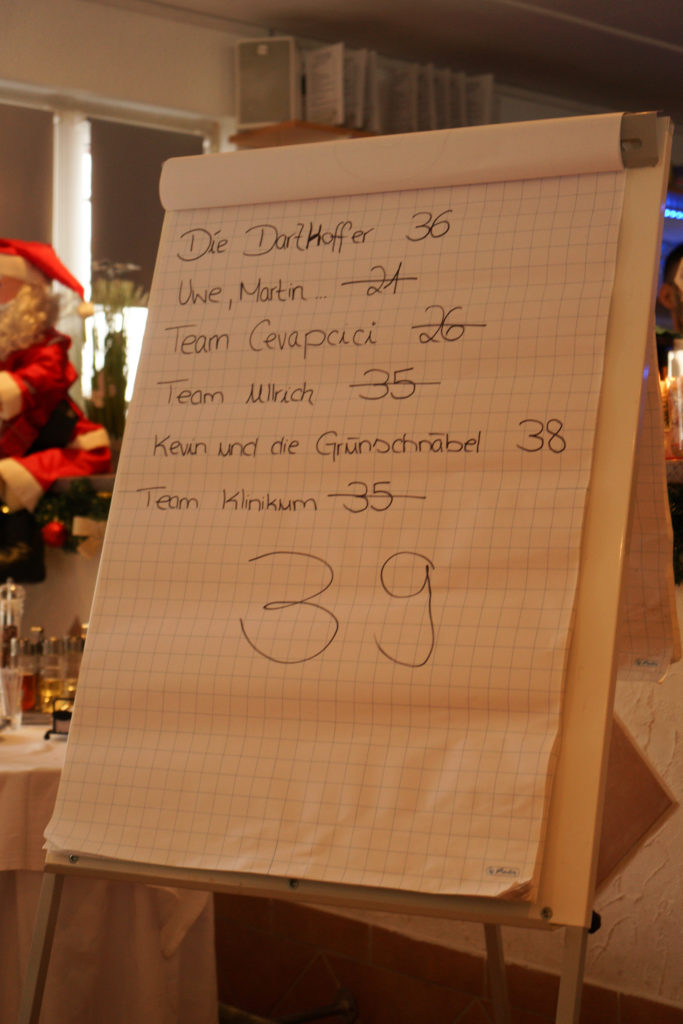 Die Dartkoffer 36
Uwe, Martin... 21
Team Cevapcici 26
Team Ullrich 35
Kevin und die Grünschnäbel 38
Team Klinikum 35
39